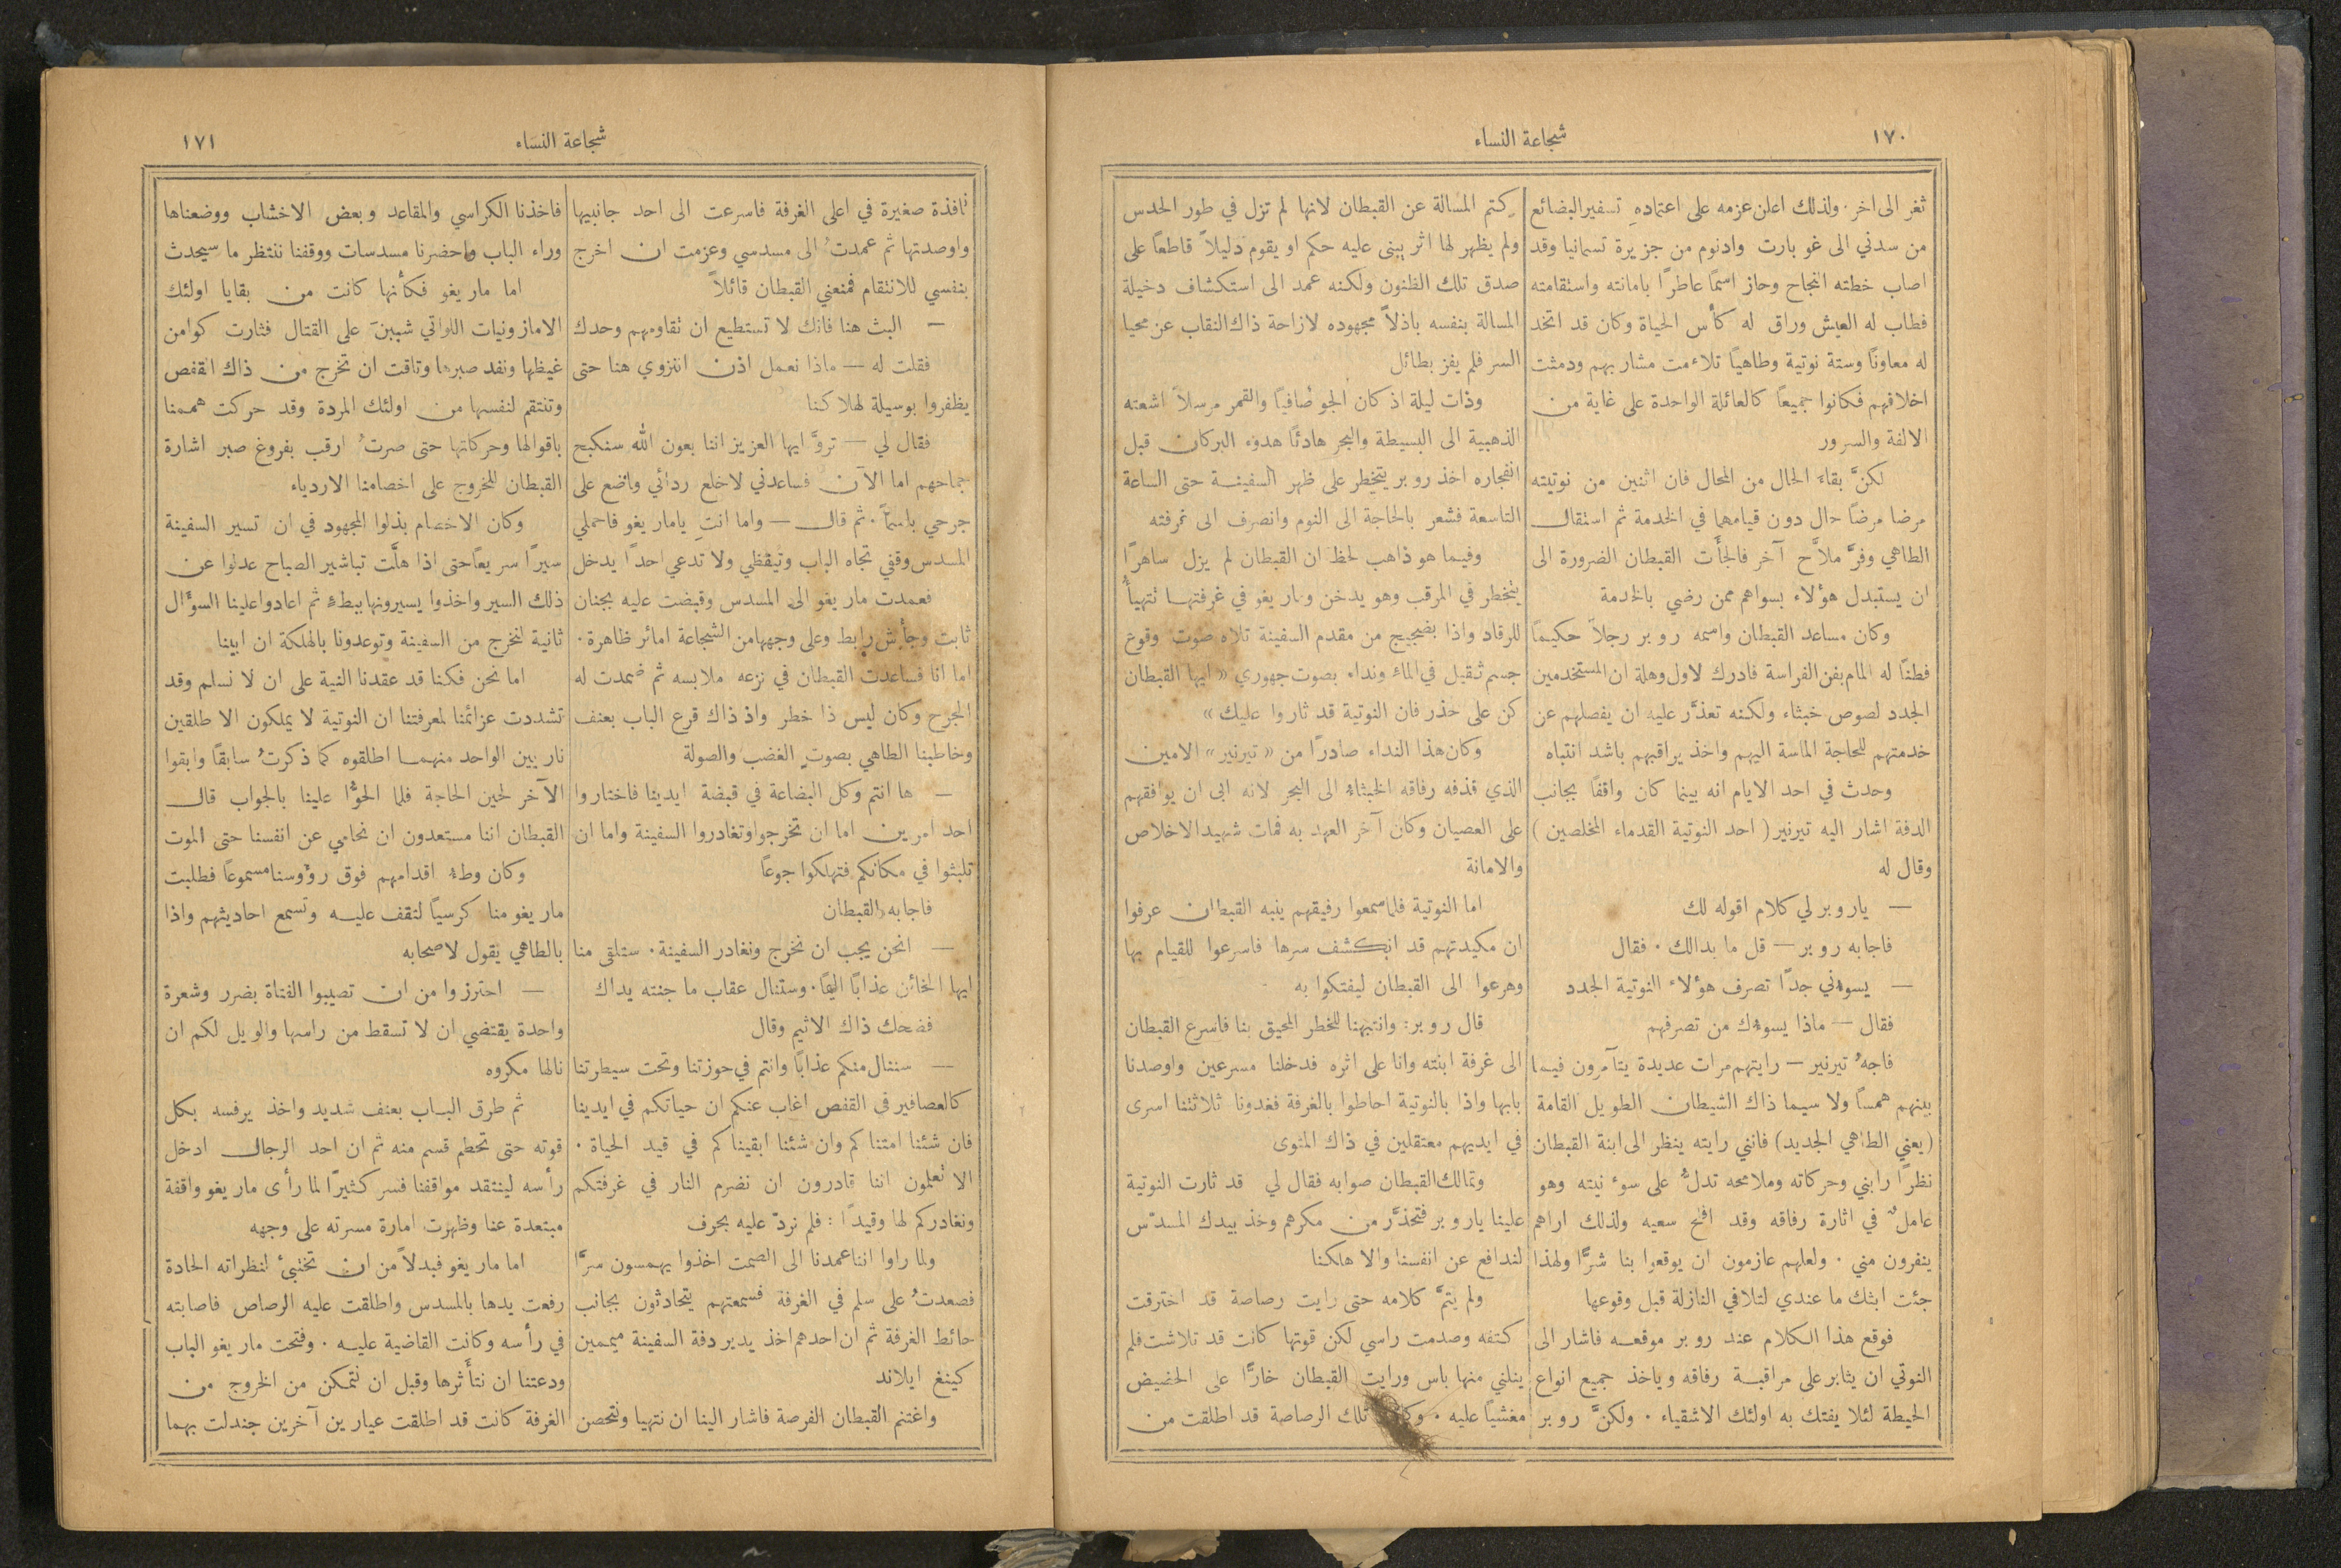 ١٧٠
شجاعة النساء
ثغر الى اخر. ولذلك اعلن عزمه على اعتمادهِ تسفير البضائع
من سدني الى غو بارت وادنوم من جزيرة تسمانيا وقد
اصاب خطته النجاح وحاز اسمًا عاطرًا بامانته واستقامته
فطاب له العيش وراق له كأس الحياة وكان قد اتخذ
له معاونًا وستة نوتية وطاهيًا تلاءمت مشاربهم ودمثت
اخلاقهم فكانوا جميعًا كالعائلة الواحدة على غاية من
الالفة والسرور
لكنَّ بقاءَ الحال من المحال فان اثنين من نوتيته
مرضا مرضًا حال دون قيامهما في الخدمة ثم استقال
الطاهي وفرَّ ملاَّح آخر فالجأَت القبطان الضرورة الى
ان يستبدل هؤلاء بسواهم ممن رضي بالخدمة
وكان مساعد القبطان واسمه روبر رجلاً حكيمًا
فطنًا له المام بفن الفراسة فادرك لاول وهلة ان المستخدمين
الجدد لصوص خبثاء ولكنه تعذَّر عليه ان يفصلهم عن
خدمتهم للحاجة الماسة اليهم واخذ يراقبهم باشد انتباه
وحدث في احد الايام انه بينما كان واقفًا بجانب
الدفة اشار اليه تيرنير ( احد النوتية القدماء المخلصين )
وقال له
— يا روبر لي كلام اقوله لك
فاجابه روبر — قل ما بدالك . فقال
— يسوءني جدًّا تصرف هؤلاء النوتية الجدد
فقال — ماذا يسوءك من تصرفهم
فاجبهُ تيرنير — رايتهم مرات عديدة يتآمرون فيما
بينهم همسًا ولا سيما ذاك الشيطان الطويل القامة
(يعني الطاهي الجديد) فانني رايته ينظر الى ابنة القبطان
نظرًا رابني وحركاته وملامحه تدلُّ على سوء نيته وهو
عاملٌ في اثارة رفاقه وقد افلح سعيه ولذلك اراهم
ينفرون مني . ولعلهم عازمون ان يوقعوا بنا شرًّا ولهذا
جئت ابثك ما عندي لتلافي النازلة قبل وقوعها
فوقع هذا الكلام عند روبر موقعه فاشار الى
النوتي ان يثابر على مراقبة رفاقه وياخذ جميع انواع
الحيطة لئلا يفتك به اولئك الاشقياء . ولكنَّ روبر
كتم المسالة عن القبطان لانها لم تزل في طور الحدس
ولم يظهر لها اثر يبنى عليه حكم او يقوم دليلاً قاطعًا على
صدق تلك الظنون ولكنه عمد الى استكشاف دخيلة
المسالة بنفسه باذلاً مجهوده لازاحة ذاك النقاب عن محيا
السر فلم يفز بطائل
وذات ليلة اذ كان الجو صافيًا والقمر مرسلاً اشعته
الذهبية الى البسيطة والبحر هادئًا هدوء البركان قبل
انفجاره اخذ روبر يتخطر على ظهر السفينة حتى الساعة
التاسعة فشعر بالحاجة الى النوم وانصرف الى غرفته
وفيما هو ذاهب لحظ ان القبطان لم يزل ساهرًا
يتخطر في المرقب وهو يدخن ومار يغو في غرفتها تتهيأُ
للرقاد واذا بضجيج من مقدم السفينة تلاه صوت وقوع
جسم ثقيل في الماء ونداء بصوت جهوري « ايها القبطان
كن على حذر فان النوتية قد ثاروا عليك »
وكان هذا النداء صادرًا من « تيرنير » الامين
الذي قذفه رفاقه الخبثاء الى البحر لانه ابى ان يوافقهم
على العصيان وكان آخر العهد به فمات شهيد الاخلاص
والامانة
اما النوتية فلما سمعوا رفيقهم ينبه القبطان عرفوا
ان مكيدتهم قد انكشف سرها فاسرعوا للقيام بها
وهرعوا الى القبطان ليفتكوا به
قال روبر: وانتبهنا للخطر المحيق بنا فاسرع القبطان
الى غرفة ابنته وانا على اثره فدخلنا مسرعين واوصدنا
بابها واذا بالنوتية احاطوا بالغرفة فغدونا ثلاثتنا اسرى
في ايديهم معتقلين في ذاك المثوى
وتمالك القبطان صوابه فقال لي قد ثارت النوتية
علينا يا روبر فتحذَّر من مكرهم وخذ بيدك المسدّس
لندافع عن انفسنا والا هلكنا
ولم يتمَّ كلامه حتى رايت رصاصة قد اخترقت
كتفه وصدمت راسي لكن قوتها كانت قد تلاشت فلم
ينلني منها باس ورايت القبطان خارًّا على الحضيض
مغشيًا عليه . تلك الرصاصة قد اطلقت من
شجاعة النساء
١٧١
نافذة صغيرة في اعلى الغرفة فاسرعت الى احد جانبيها
واوصدتها ثم عمدتُ الى مسدسي وعزمت ان اخرج
بنفسي للانتقام فمنعني القبطان قائلاً
— البث هنا فانك لا تستطيع ان تقاومهم وحدك
فقلت له — ماذا نعمل اذن اننزوي هنا حتى
يظفروا بوسيلة لهلاكنا
فقال لي — تروَّ ايها العزيز اننا بعون الله سنكبح
جماحهم اما الآن فساعدني لاخلع ردائي واضع على
جرحي باسمًا . ثم قال — واما انتِ يا مار يغو فاحملي
المسدس وقفي تجاه الباب وتيقظي ولا تدعي احدًا يدخل
فعمدت مار يغو الى المسدس وقبضت عليه بجنان
ثابت وجأش رابط وعلى وجهها من الشجاعة امائر ظاهرة .
اما انا فساعدت القبطان في نزعه ملابسه ثم ضمدت له
الجرح وكان ليس ذا خطر واذ ذاك قرع الباب بعنف
وخاطبنا الطاهي بصوتٍ الغضب والصولة
— ها انتم وكل البضاعة في قبضة ايدينا فاختاروا
احد امرين اما ان تخرجوا وتغادروا السفينة واما ان
تلبثوا في مكانكم فتهلكوا جوعًا
فاجابه القبطان
— انحن يجب ان نخرج ونغادر السفينة . ستلقى منا
ايها الخائن عذابًا اليمًا . وستنال عقاب ما جنته يداك
فضحك ذاك الاثيم وقال
— سننال منكم عذابًا وانتم في حوزتنا وتحت سيطرتنا
كالعصافير في القفص اغاب عنكم ان حياتكم في ايدينا
فان شئنا امتناكم وان شئنا ابقيناكم في قيد الحياة .
الا تعلمون اننا قادرون ان نضرم النار في غرفتكم
ونغادركم لها وقيدًا : فلم نردّ عليه بحرف
ولما راوا اننا عمدنا الى الصمت اخذوا يهمسون سرًّا
فصعدتُ على سلم في الغرفة فسمعتهم يتحادثون بجانب
حائط الغرفة ثم ان احدهم اخذ يدير دفة السفينة ميممين
كينغ ايلاند
واغتنم القبطان الفرصة فاشار الينا ان نتهيا ونتحصن
فاخذنا الكراسي والمقاعد وبعض الاخشاب ووضعناها
وراء الباب واحضرنا مسدسات ووقفنا ننتظر ما سيحدث
اما مار يغو فكأنها كانت من بقايا اولئك
الامازونيات اللواتي شببنَ على القتال فثارت كوامن
غيظها ونفد صبرها وتاقت ان تخرج من ذاك القفص
وتنتقم لنفسها من اولئك المردة وقد حركت هممنا
باقوالها وحركاتها حتى صرتُ ارقب بفروغ صبر اشارة
القبطان للخروج على اخصامنا الاردياء
وكان الاخصام بذلوا المجهود في ان تسير السفينة
سيرًا سريعًا حتى اذا هلَّت تباشير الصباح عدلوا عن
ذلك السير واخذوا يسيرونها ببطءٍ ثم اعادوا علينا السؤَال
ثانية لنخرج من السفينة وتوعدونا بالهلكة ان ابينا
اما نحن فكنا قد عقدنا النية على ان لا نسلم وقد
تشددت عزائمنا لمعرفتنا ان النوتية لا يملكون الا طلقين
ناريين الواحد منهما اطلقوه كما ذكرتُ سابقًا وابقوا
الآخر لحين الحاجة فلما الحوُّا علينا بالجواب قال
القبطان اننا مستعدون ان نحامي عن انفسنا حتى الموت
وكان وطءُ اقدامهم فوق رؤوسنا مسموعًا فطلبت
مار يغو منا كرسيًا لتقف عليه وتسمع احاديثهم واذا
بالطاهي يقول لاصحابه
— احترزوا من ان تصيبوا الفتاة بضرر وشعرة
واحدة يقتضي ان لا تسقط من راسها والويل لكم ان
نالها مكروه
ثم طرق الباب بعنف شديد واخذ يرفسه بكل
قوته حتى تحطم قسم منه ثم ان احد الرجال ادخل
رأسه لينتقد مواقفنا فسر كثيرًا لما رأى مار يغو واقفة
مبتعدة عنا وظهرت امارة مسرته على وجهه
اما مار يغو فبدلاً من ان تختبئ لنظراته الحادة
رفعت يدها بالمسدس واطلقت عليه الرصاص فاصابته
في رأسه وكانت القاضية عليه . وفتحت مار يغو الباب
ودعتنا ان نتأَثرها وقبل ان نتمكن من الخروج من
الغرفة كانت قد اطلقت عيارين آخرين جندلت بهما